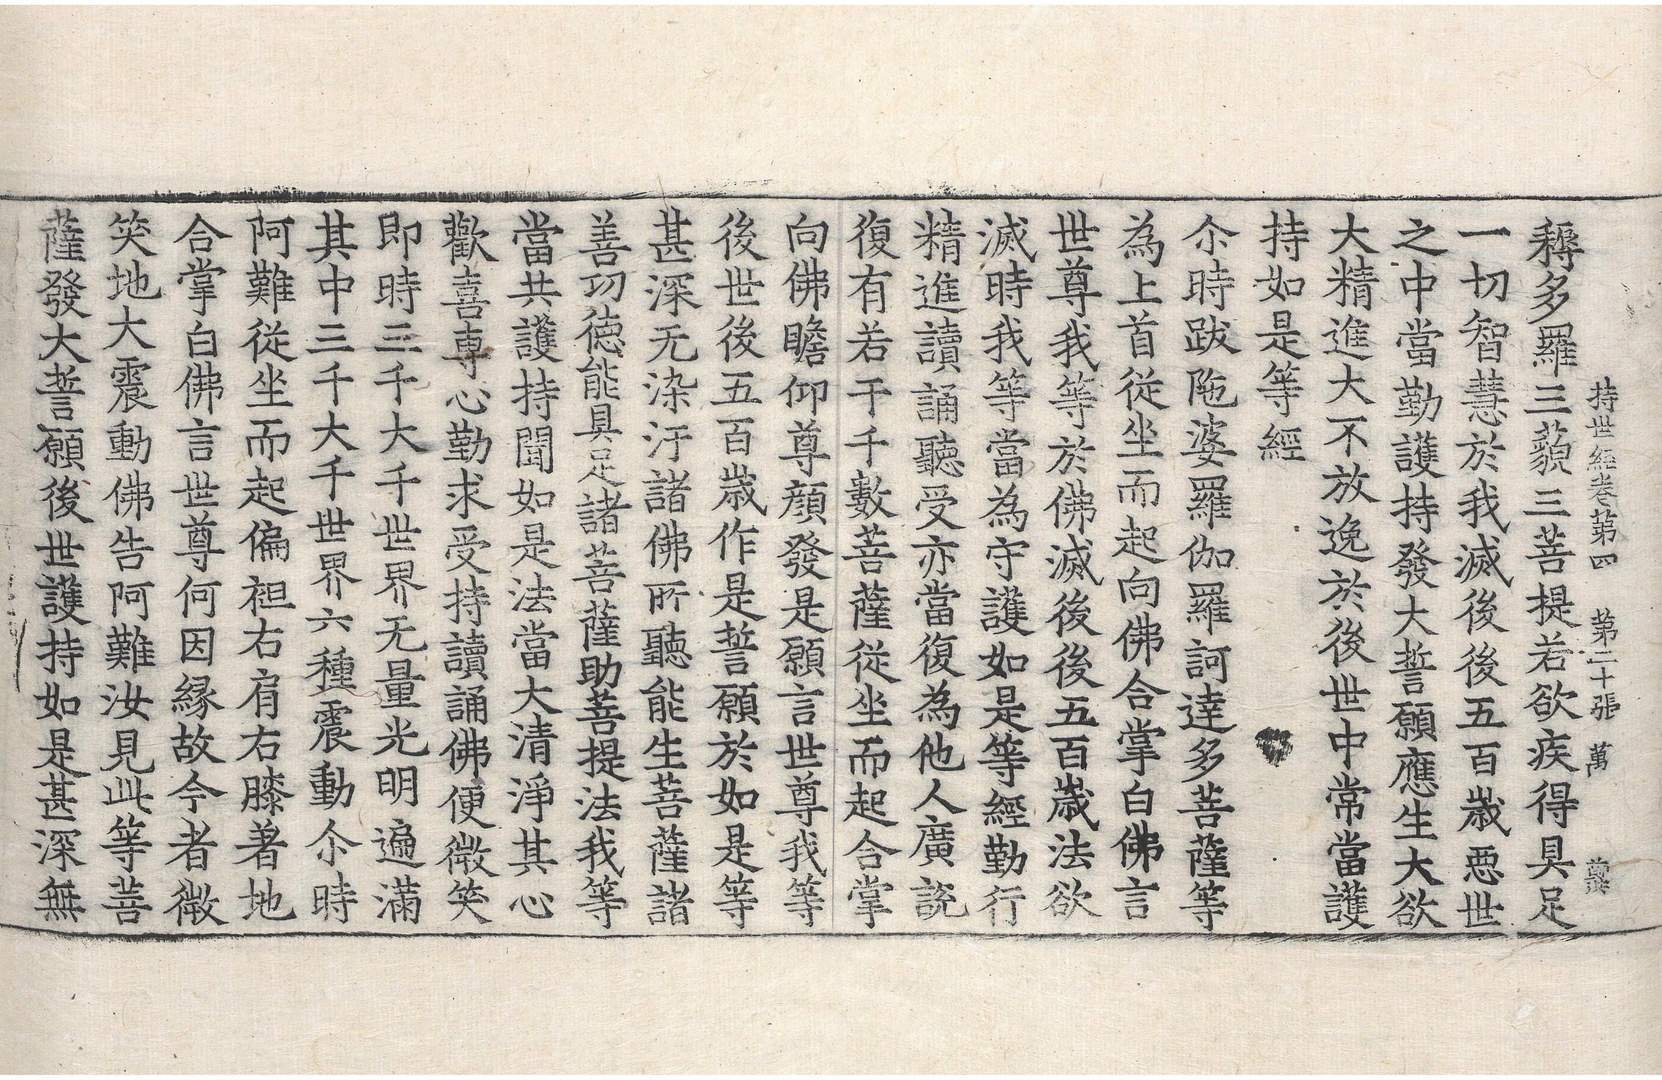 持世經卷第四　第二十張　萬
耨多羅三藐三菩提若欲疾得具足
一切智慧於我滅後後五百歲惡世
之中當勤護持發大誓願應生大欲
大精進大不放逸於後世中常當護
持如是等經
尒時跋陁婆羅伽羅訶達多菩薩等
為上首從坐而起向佛合掌白佛言
世尊我等於佛滅後後五百歲法欲
滅時我等當為守護如是等經勤行
精進讀誦聽受亦當復為他人廣說
復有若干千數菩薩從坐而起合掌
向佛瞻仰尊顏發是願言世尊我等
後世後五百歲作是誓願於如是等
甚深无染汙諸佛所聽能生菩薩諸
善功德能具足諸菩薩助菩提法我等
當共護持聞如是法當大清淨其心
歡喜專心勤求受持讀誦佛便微笑
即時三千大千世界无量光明遍滿
其中三千大千世界六種震動尒時
阿難從坐而起偏袒右肩右膝著地
合掌白佛言世尊何因緣故今者微
笑地大震動佛告阿難汝見此等菩
薩發大誓願後世護持如是甚深無